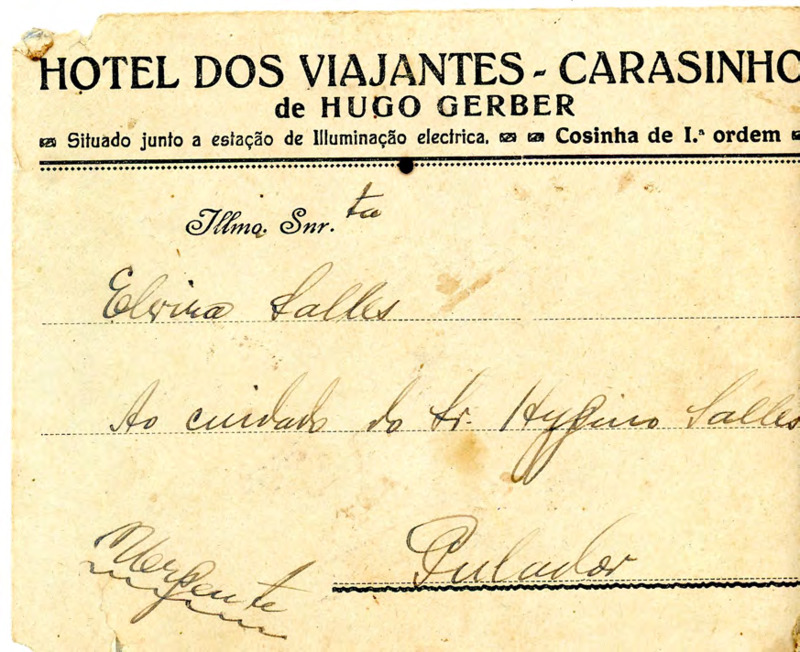 HOTEL DOS VIAJANTES - CARASINHO
de HUGO GERBER
Situado junto a estação de Illuminação electrica. Cosinha de I.ª ordem
Illmo. Snr. ta
Elvira Salles
Ao cuidado do Sr. Hygino Salles
Pulador
Urgente